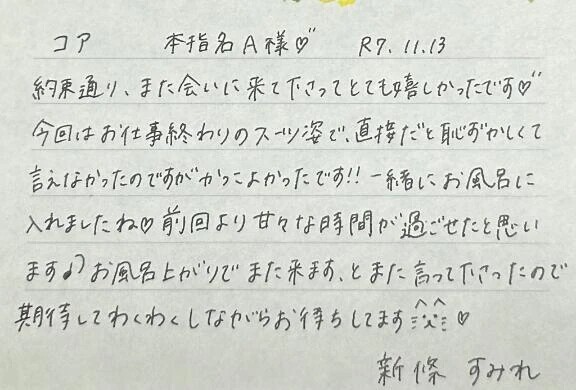 コア 本指名A様♡ R7.11.13
約束通り、また会いに来て下さってとても嬉しかったです♡
今回はお仕事終わりのスーツ姿で、直接だと恥ずかしくて
言えなかったのですがかっこよかったです!!一緒にお風呂に
入れましたね♡前回より甘々な時間が過ごせたと思い
ます♪お風呂上がりでまた来ます、とまた言って下さったので
期待してわくわくしながらお待ちしてます♡
新條 すみれ